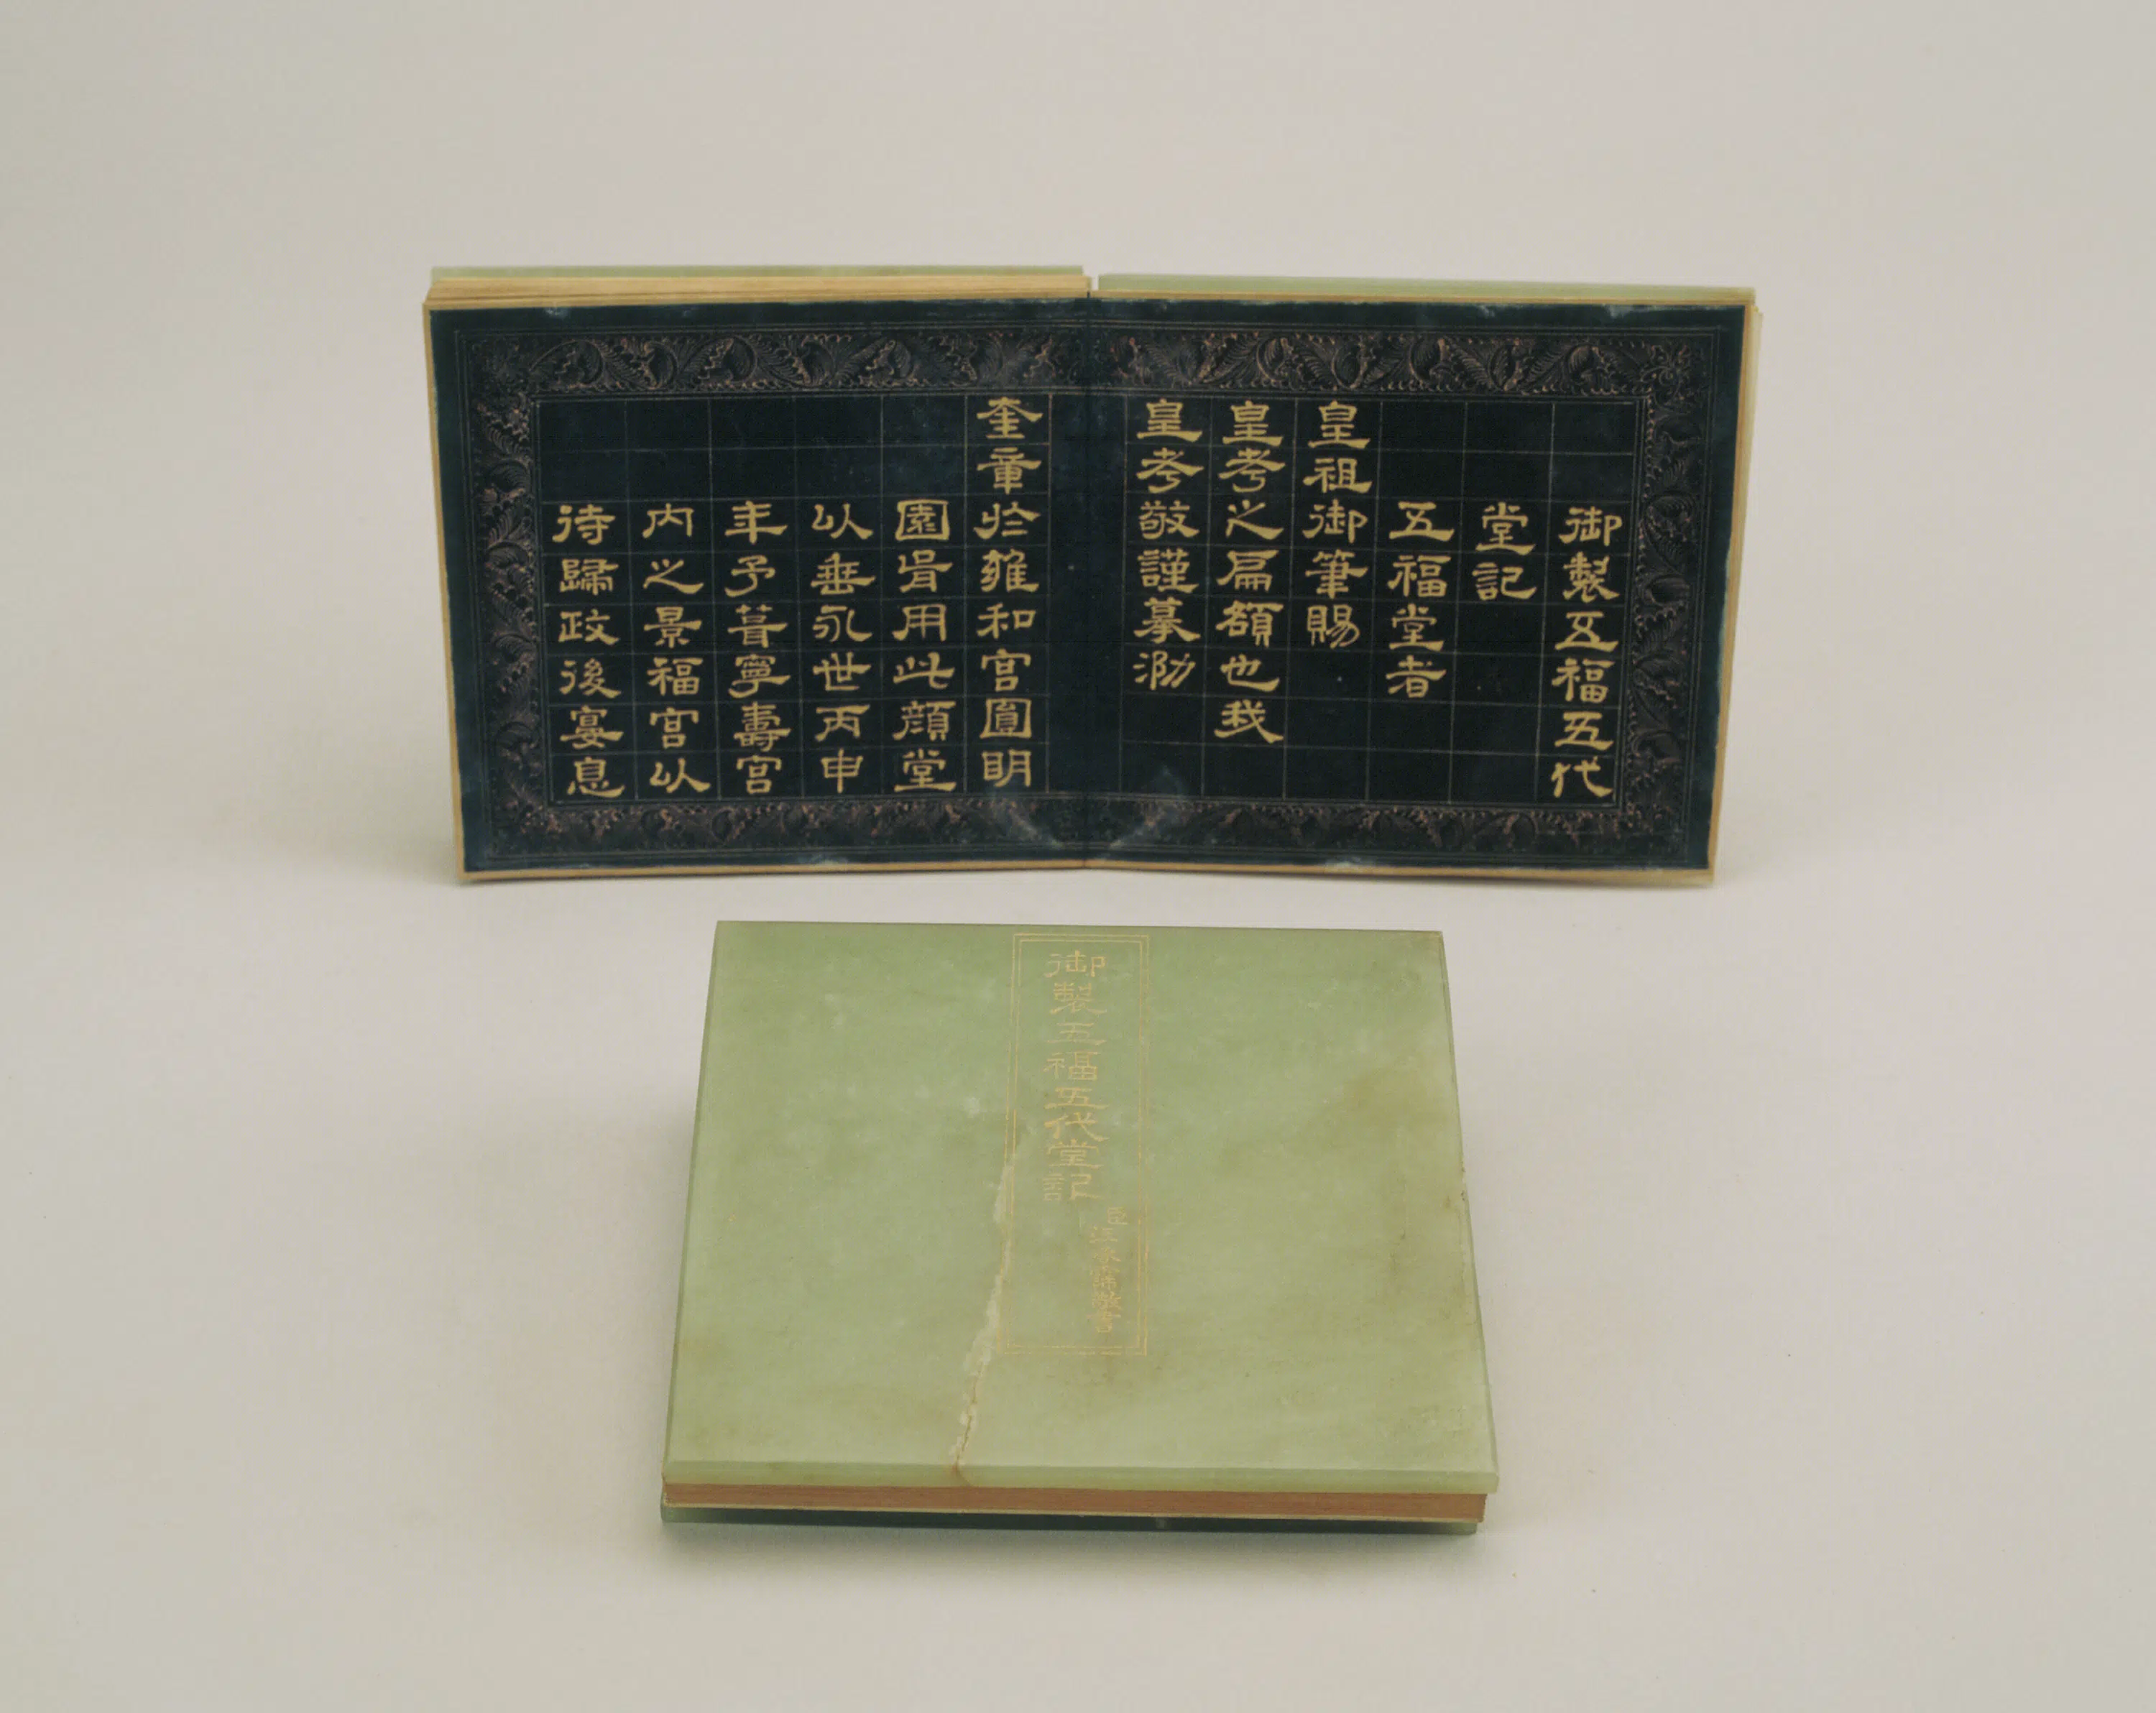 御製五福五代
堂記
五福堂者
皇祖御筆賜
皇考之扁額也我
皇考敬謹摹泐
奎章於雍和宮圓明
園皆用此顏堂
以垂永世丙申
年予葺寧壽宮
內之景福宮以
待歸政後宴息
御製五福五代堂記
臣汪承霈敬書